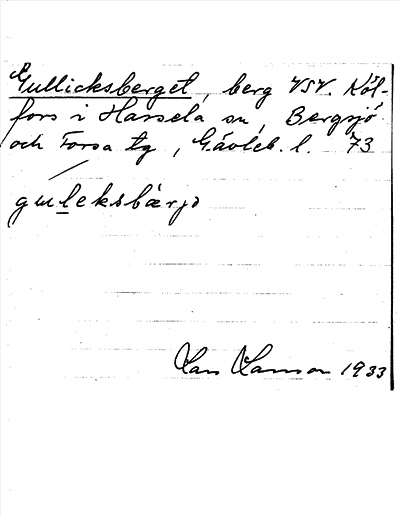 Gullicksberget, berg VSV. Köl-
fors i Hassela sn, Bergsjö
och Forsa tg, Gävleb. l. 73
guleksbärjə
Hans Hanson 1933